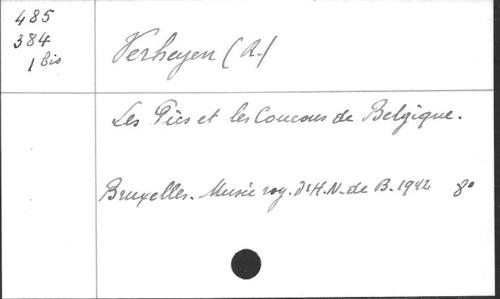 485
384
1 bis
Verheyen (R.)
Les Pics et les Coucous de Belgique.
Bruxelles. Musée roy. d'H. N. de B. 1942 8°